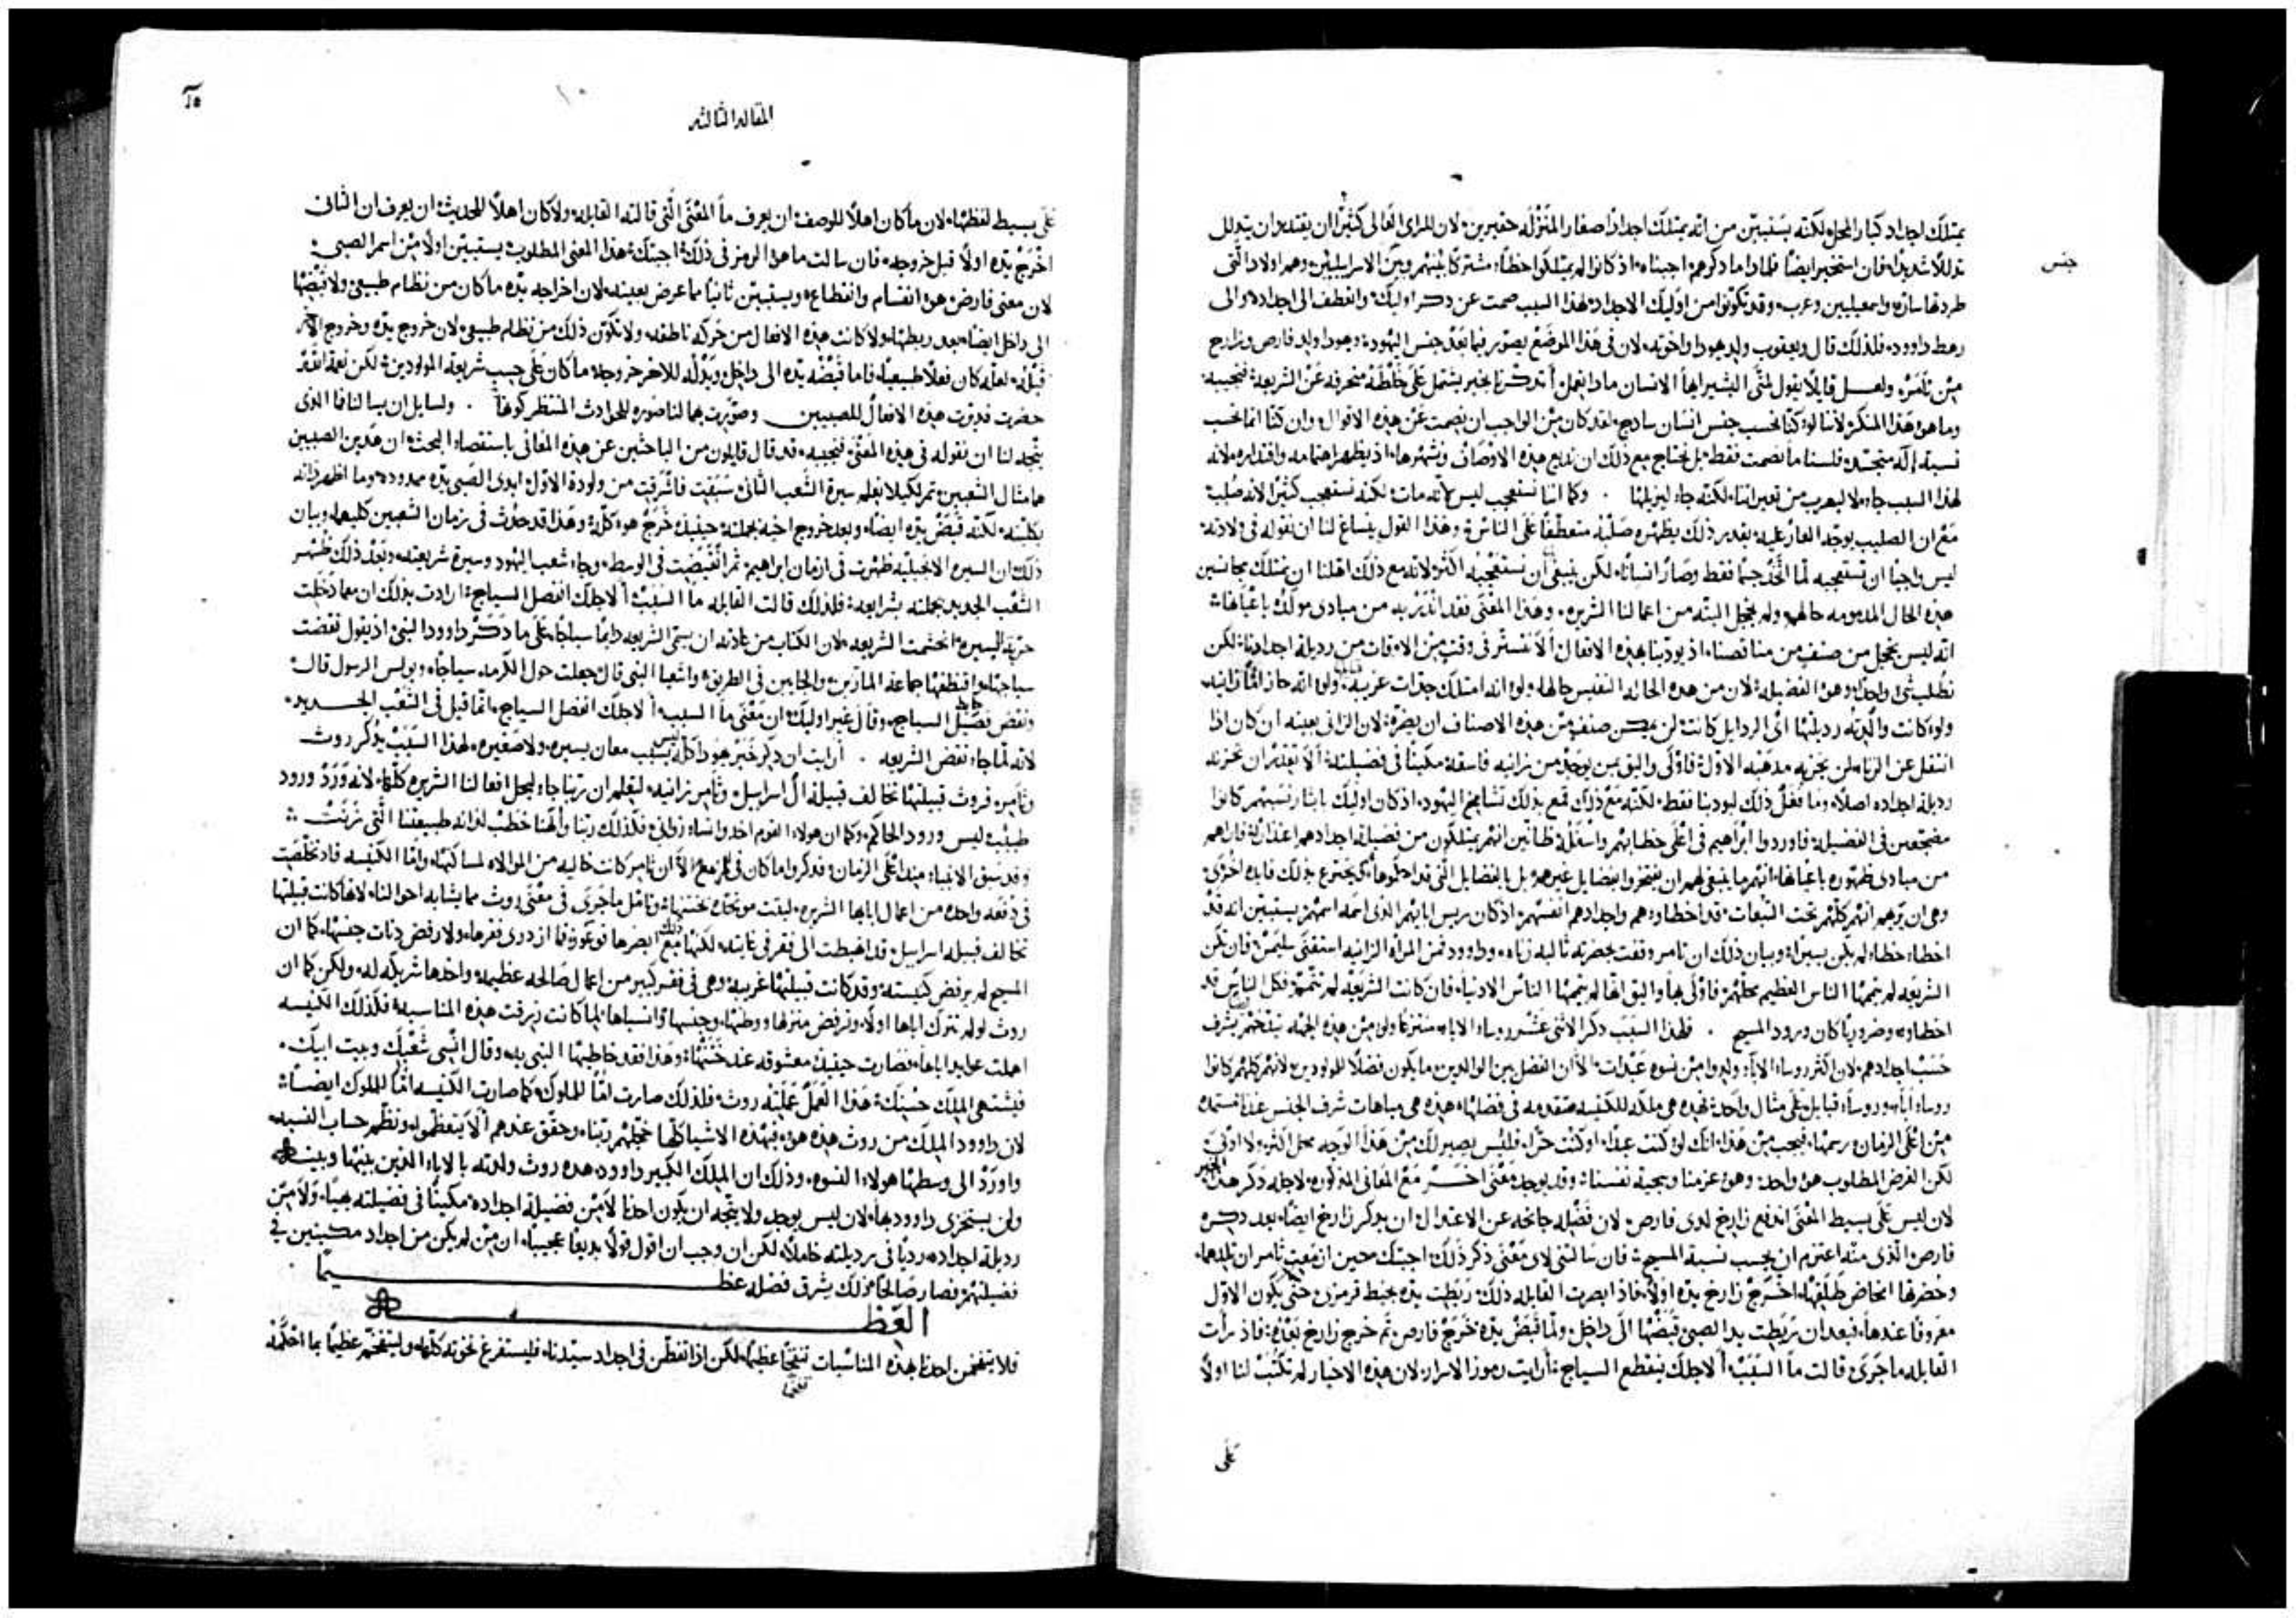 يمتلك اجداد كبار المحل لكنه يستبين من انه يمتلك اجدادًا صغار المنزلة حقيرين لان للراي العالي كثيرًا ان يقتدر ان يتدلل
جنس
تدللا شديدًا فان استخبر ايضًا فلماذا ما ذكرهم اجبناه اذ كانوا لم يمتلكوا حظًا مشتركًا بينهم وبين الاسراييليين وهم اولاد التي
طردتها ساره واسمعيليين وعرب وقد تكونوا من اوليك الاجداد لهذا السبب صمت عن ذكر اوليك وانعطف الى اجداده والى
رهط داوود فلذلك قال ويعقوب ولد يهودا واخوته لان في هذا الموضع يصور فيما بعد جنس اليهود ويهودا ولد فارص وزارح
من تامر ولعل قايلا يقول لمتى البشير ايها الانسان ماذا تعمل أتذكرنا بخبر يشتمل على خلطة منحرفة عن الشريعة فنجيبه
وما هو هذا المنكر لاننا لو كنا نحسب جنس انسان ساذج لقد كان من الواجب ان يصمت عن هذه الاقوال وان كنا انما نحسب
نسبة إله متجسد فلسنا ما نصمت فقط بل نحتاج مع ذلك ان نذيع هذه الاوصاف ونشهرها اذ يظهر اهتمامه واقتداره لانه
لهذا السبب جاء لا ليهرب من تعييراتنا لكنه جاء ليزيلها . وكما اننا نستعجب ليس لانه مات لكنه نستعجب كثيرًا لانه صلب
مع ان الصليب يوجد العار عليه بقدر ذلك يظهره صلبه متعطفًا على الناس وهذا القول ينساغ لنا ان نقوله في ولادته
ليس واجبًا ان نستعجبه لما اتخذ جسمًا فقط وصار انسانًا لكن ينبغي أن نستعجبه اكثر لانه مع ذلك اهلنا ان نمتلك مجانسين
هذه الحال المذمومه حالهم ولم يخجل البته من اعمالنا الشريره وهذا المعنى فقد انذر به من مبادى مولده باعيانها
انه ليس يخجل من صنف من مناقصنا اذ يودبنا بهذه الافعال ألا نستتر في وقت من الاوقات من رديلة اجدادنا لكن
نطلب شي واحدًا وهو الفضيله لان من هذه الحاله النفيس حالها ولو انه امتلك جدات غريبه ولو انه حاز امًّا زانيه
ولو كانت والدته رديلتها اي الردايل كانت لن يمكن صنف من هذه الاصناف ان يضره لان الزاني بعينه ان كان اذا
انتقل عن الزناء لن يخزيه مذهبه الاول فاولى واليق بمن يوجد من زانيه فاسقة مكينًا في فضيلته الا تقتدر ان تخزيه
رديلة اجداده اصلا وما فعل ذلك ليودبنا فقط لكنه مع ذلك قمع بذلك تشامخ اليهود اذ كان اوليك بايثار نسبهم كانوا
مضجعين في الفضيلة فاوردوا ابراهيم في اعلى خطابهم واسفله ظانين انهم يمتلكون من فضيلة اجدادهم اعتذارًا فاراهم
من مبادى ظهوره باعيانها انهم ما ينبغي لهم ان يفتخروا بفضايل غيرهم بل بالفضايل التي قد احكموها كي يخترع بذلك فايده اخرى
وهي ان يريهم انهم كلهم تحت التبعات قد اخطاوا هم واجدادهم انفسهم اذ كان رييس ابايهم الذي اسمه اسمهم يستبين انه قد
اخطا خطاء لم يكن يسيرًا وبيان ذلك ان تامر وقفت بحضرته ثالبه زناه وداوود فمن المراة الزانيه استقنى سليمن فان تكن
الشريعه لم يتممها الناس العظيم محلهم فاولى بها واليق انها لم يتممها الناس الادنياء فان كانت الشريعه لم تتمم فكل الناس قد
اخطاوا وضروريًا كان ورود المسيح . فلهذا السبب ذكر الاثني عشر روساء الاباء منتزعًا ولو من هذه الجهه تفخيم بشرف
حسب اجدادهم لان اكثر روساء الاباء ولدوا من نسوه عبدات الا ان الفصل بين الوالدين ما يكون فضلا للمولودين لانهم كلهم كانوا
روساء أباء وروساء قبايل على مثال واحد فهذه هي ملكه للكنيسه متقدمه في فضلها هذه هي مباهات شرف الجنس عندنا مستمده
من اعلى الزمان ورسمها فيجب من هذا انك لو كنت عبدًا او كنت حرًا فليس يصير لك من هذا الوجه محل اكثر ولا ادنى
لكن الغرض المطلوب هو واحد وهو عزمنا وسجية نفسنا وقد يوجد معنى اخـر مع المعاني المذكوره لاجله ذكر هذا الخبر
لان ليس على بسيط المعنى اندفع زارح لدى فارص لان فضله جانحه عن الاعتدال ان يذكر زارح ايضًا بعد ذكره
فارص الذي منه اعتزم ان يحسب نسبة المسيح فان سالتني لاي معنى ذكر ذلك اجبتك حين ازمعت تامر ان تلدهما
وحضرها المخاض طلقها اخرج زارح يده اولا فاذ ابصرت القابله ذلك ربطت يده بخيط قرمزي حتى يكون الاول
معروفًا عندها فبعد ان ربطت يد الصبي قبضها الى داخل ولما قبض يده خرج فارص ثم خرج زارح بعده فاذ رأت
القابله ما جرى قالت ما السبب ألاجلك ينقطع السياج أرايت رموز الاسرار لان هذه الاخبار لم تكتب لنا اولا
على
المقاله الثالثه
١٠
على بسيط لفظها لان ما كان اهلا للوصف ان يعرف ما المعنى التي قالته القابله ولا كان اهلا للحديث ان يعرف ان الثاني
اخرج يده اولا قبل خروجه فان سالت ما هو الرمز في ذلك اجبتك هذا المعنى المطلوب يستبين اولا من اسم الصبي
لان معنى فارض هو انقسام وانقطاع ويستبين ثانيًا مما عرض بعينه لان اخراجه يده ما كان من نظام طبيعي ولا قبضها
الى داخل ايضًا بعد ربطها ولا كانت هذه الافعال من حركه ناطقه ولا تكون ذلك من نظام طبيعي لان خروج يده وخروج الاخر
قبله لعله كان فعلا طبيعيًا فاما قبضه يده الى داخل وبدله للاخر خروجه ما كان على حسب شريعة المولودين لكن نعمة الله
حضرت فدبرت هذه الافعال للصبيين وصورت بهما لنا صوره للحوادث المنتظر كونها . ولسايل ان يسالنا فما الذي
يتجه لنا ان نقوله في هذه المعنى فنجيبه قد قال قايلون من الباحثين عن هذه المعاني باستقصاء البحث ان هذين الصبيين
هما مثال الشعبين ثم لكيلا نعلم سيرة الشعب الثاني سبقت فاشرقت من ولودة الاول ابدى الصبي يده ممدوده وما اظهر ذاته
بكليته لكنه قبض يده ايضًا وبعد خروج اخيه بجملته حينيذ خرج هو كله وهذا قد حدث في زمان الشعبين كليهما وبيان
ذلك ان السيره الانجيليه ظهرت في ازمان ابراهيم ثم انقبضت في الوسط وجاء شعب اليهود وسيرة شريعته وبعد ذلك ظهر
الشعب الجديد بجملته بشرايعه فلذلك قالت القابله ما السبب ألاجلك انفصل السياج ارادت بذلك ان مما دخلت
حرية السيره انحشمت الشريعه لان الكتاب من عادته ان يسمي الشريعه دايمًا سياجًا على ما ذكر داوود النبي اذ يقول نقضت
سياجها واقتطفها جماعة المارين والجايين في الطريق واشعيا النبي قال جعلت حول الكرمه سياجًا وبولس الرسول قال
ونقض فصيل السياج وقال غير اوليك ان معنى ما السبب ألاجلك انفصل السياج انما قيل في الشعب الجــديد
لانه لما جاء نقض الشريعه . أرايت ان ذكر خبر يهودا كله ليس بسبب معان يسيره ولا صغيره لهذا السبب يذكر روث
وتامر فروث قبيلتها تخالف قبيلة ال اسراييل وتامر زانيه ليعلم ان ربنا جاء ليحل افعالنا الشريره كلها لانه ورد ورود
طبيب ليس ورود الحاكم وكما ان هولاء القوم اخذوا نساء زواني فكذلك ربنا والهنا خطب لذاته طبيعتنا التي زنت
وقد سبق الانبياء منذ اعلى الزمان فذكروا ما كان في تامر مع الا ان تامر كانت خاليه من الموالاه لمساكنها واما الكنيسه فاد تخلصت
في دفعه واحده من اعمال ابايها الشريره لبثت مونحاه بختنها وتامل ما جرى في معنى روث مما يشابه احوالنا لانها كانت قبيلتها
تخالف قبيلة اسراييل قد اهبطت الى فقر في غايته لكنها مع ذلك ابصرها بوعوز فما ازدرى فقرها ولا رفض دناة جنسها كما ان
المسيح لم يرفض كنيسته وقد كانت قبيلتها غريبه وهي في فقر كبير من اعمال صالحه عظيمه واخذها شريكه له ولكن كما ان
روث لو لم تترك اباها اولا وترفض منزلها ووطنها وجنسها وانسباها لما كانت رزقت هذه المناسبه فكذلك الكنيسه
اهلت عوايد اباها فصارت حينيذ معشوقه عند ختنها وهذا فقد خاطبها النبي به وقال انسي شعبك وبيت ابيك
فيشتهي الملك حسنك هذا العمل عملته روث فلذلك صارت امًّا للملوك كما صارت الكنيسه امًّا للملوك ايضًا
لان داوود الملك من روث هذه هو فبهذه الاشيا كلها خجلهم ربنا وحقق عندهم ألا يتعظموا ونظم حساب النسبه
واورد الى وسطها هولاء النسوه وذلك ان الملك الكبير داوود هذه روث ولدته بالاباء الذين بينها وبينه
ولن يستخزي داوود بها لان ليس يوجد ولا يتجه ان يكون احدنا لا من فضيلة اجداده مكينًا في فضيلته بهيًا ولا من
رديلة اجداده رديًا في رديلته خاملا لكن ان وجب ان اقول قولا بديعًا عجيبًا ان من لم يكن من اجداد مكينين في
فضيلتهم فصار صالحًا فذلك يشرق فضله عظـــــيمًا
العظــــه
فلا يتفخمن احدنا بهذه المناسبات تفخمًا عظيمًا لكن اذا تفطن في اجداد سيدنا فليستفرغ نخوته كلها وليتفخم عظيمًا بما احكمه